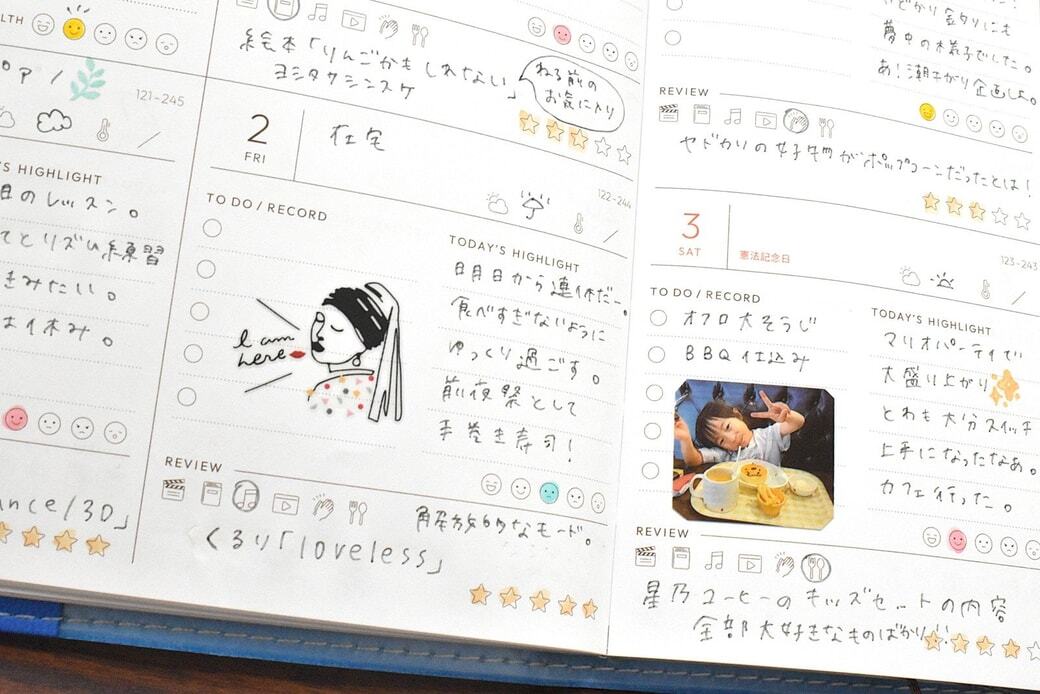 LTH
121-245
'S HIGHLIGHT
日のレッスン。
てとリズム練習
きみたい。
はイ木み。
ance/3D」
絵本「りんごかもしれない」
ヨシタケシンスケ
ねる前の
お気に入り
2
FRI
在宅
122-244
TO DO / RECORD
I am
here
TODAY'S HIGHLIGHT
明日から連休だー。
食べすぎないように
ゆっくり過ごす。
前夜祭として
手巻き寿司!
REVIEW
解放的なモード。
くるり「loveless」
夢中の様子でした。
あ!潮干がり企画しよ。
REVIEW
ヤドカリの好物がポップコーンだったとは!
3
SAT
憲法記念日
123-243
TO DO / RECORD
オフロ大そうじ
BBQ仕込み
TODAY'S HIGHLIGHT
マリオパーティで
大盛り上がり
とわも大分スイッチ
上手になったなあ。
カフェ行った。
REVIEW
星乃コーヒーのキッズセットの内容
全部大好きなものばかり!!